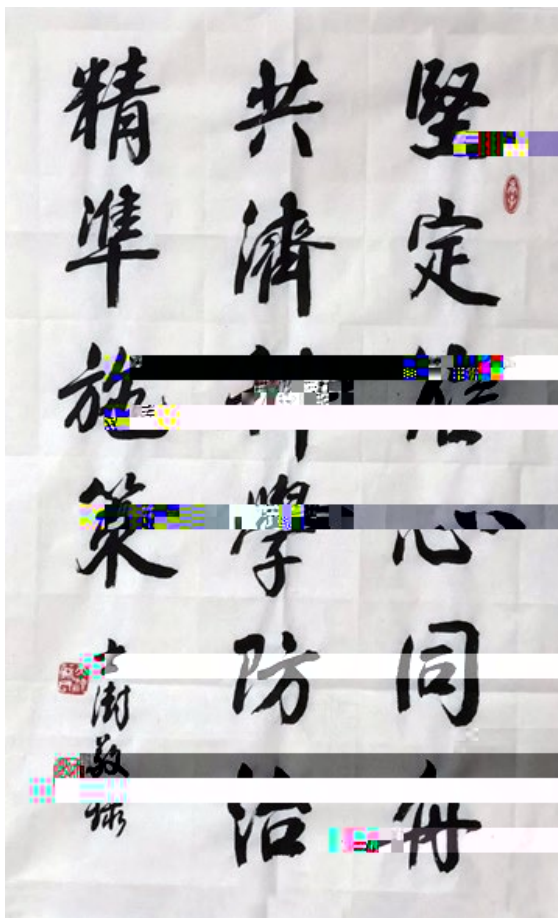 堅定信心同舟
共濟科學防治
精準施策
士澍敬